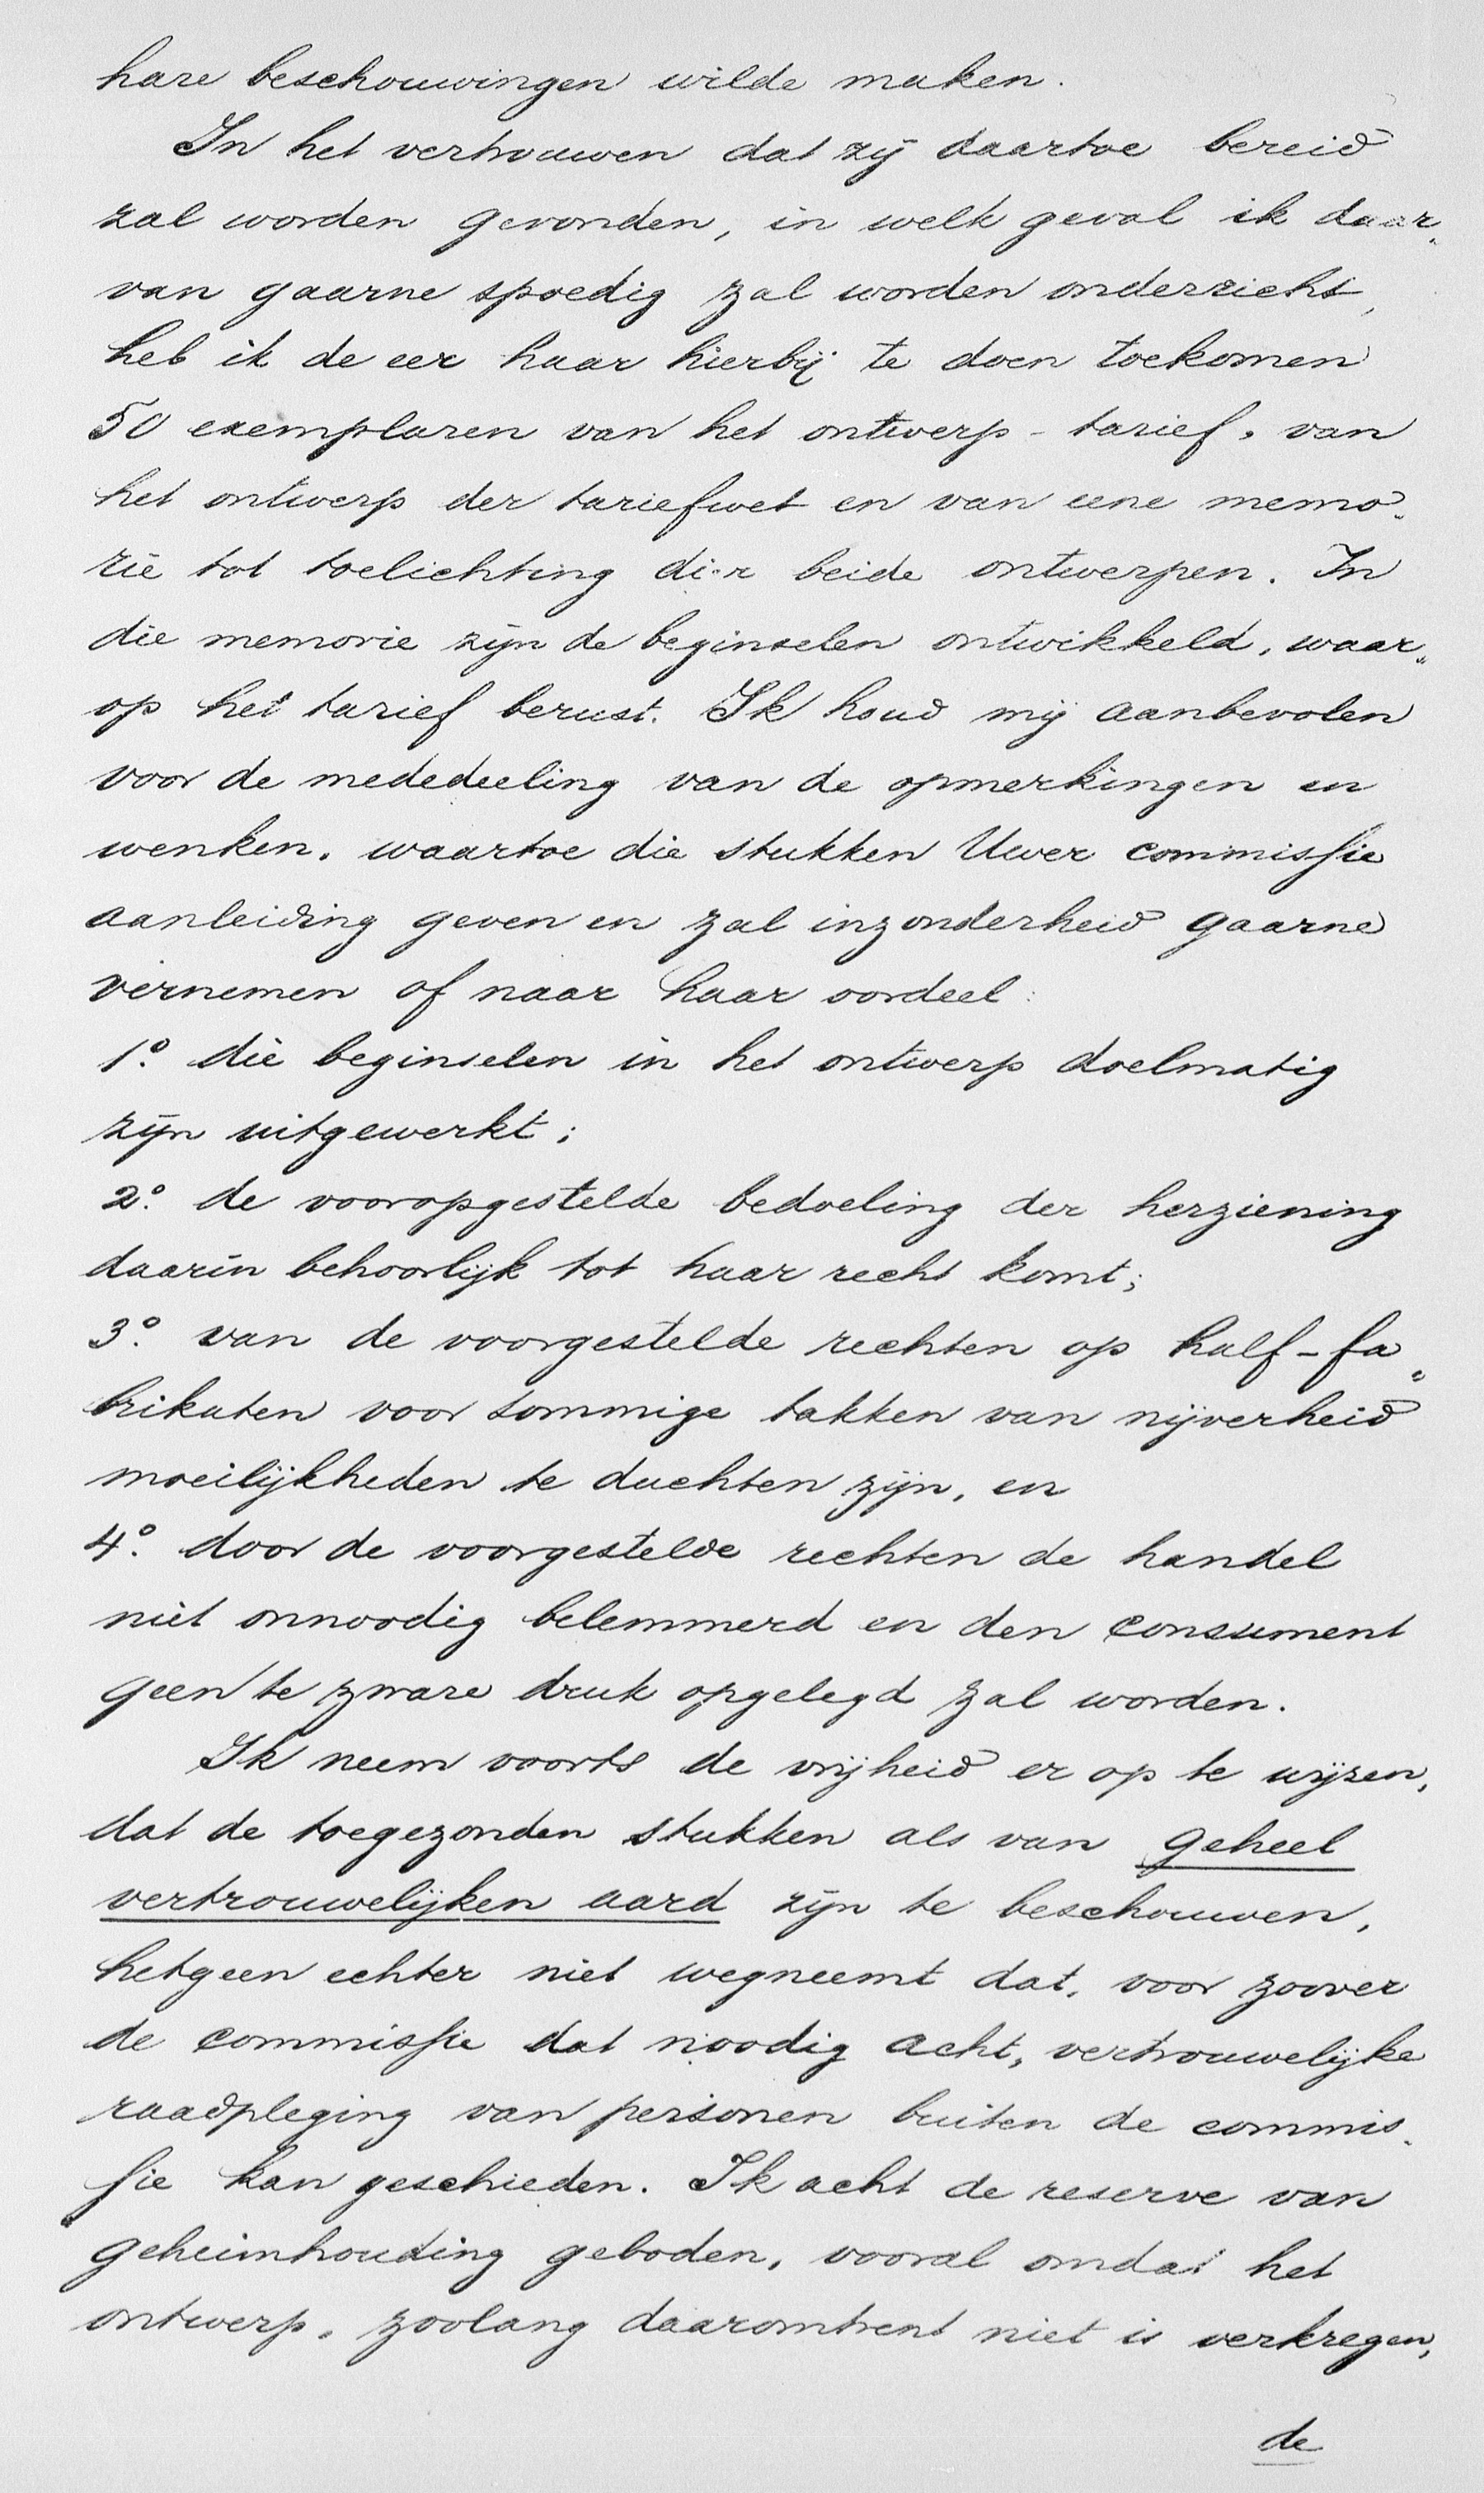 hare beschouwingen wilde maken.
In het vertrouwen dat zij daartoe bereid
zal worden gevonden, in welk geval ik daar„
van gaarne spoedig zal worden onderricht,
heb ik de eer haar hierbij te doen toekomen
50 exemplaren van het ontwerp-tarief, van
het ontwerp der tariefwet en van eene memo„
rie tot toelichting dier beide ontwerpen. In
die memorie zijn de beginselen ontwikkeld, waar„
op het tarief berust. Ik houd mij aanbevolen
voor de mededeeling van de opmerkingen en
wenken, waartoe die stukken Uwer commissie
aanleiding geven en zal inzonderheid gaarne
vernemen of naar haar oordeel:
1º. die beginselen in het ontwerp doelmatig
zijn uitgewerkt;
2º. de vooropgestelde bedoeling der herziening
daarin behoorlijk tot haar recht komt;
3º. van de voorgestelde rechten op half-fa„
brikaten voor sommige takken van nijverheid
moeilijkheden te duchten zijn, en
4º. door de voorgestelde rechten de handel
niet onnoodig belemmerd en den consument
geen te zware druk opgelegd zal worden.
Ik neem voorts de vrijheid er op te wijzen,
dat de toegezonden stukken als van geheel
vertrouwelijken aard zijn te beschouwen,
hetgeen echter niet wegneemt dat, voor zoover
de commissie dat noodig acht, vertrouwelijke
raadpleging van personen buiten de commis„
sie kan geschieden. Ik acht de reserve van
geheimhouding geboden, vooral omdat het
ontwerp, zoolang daaromtrent niet is verkregen,
de